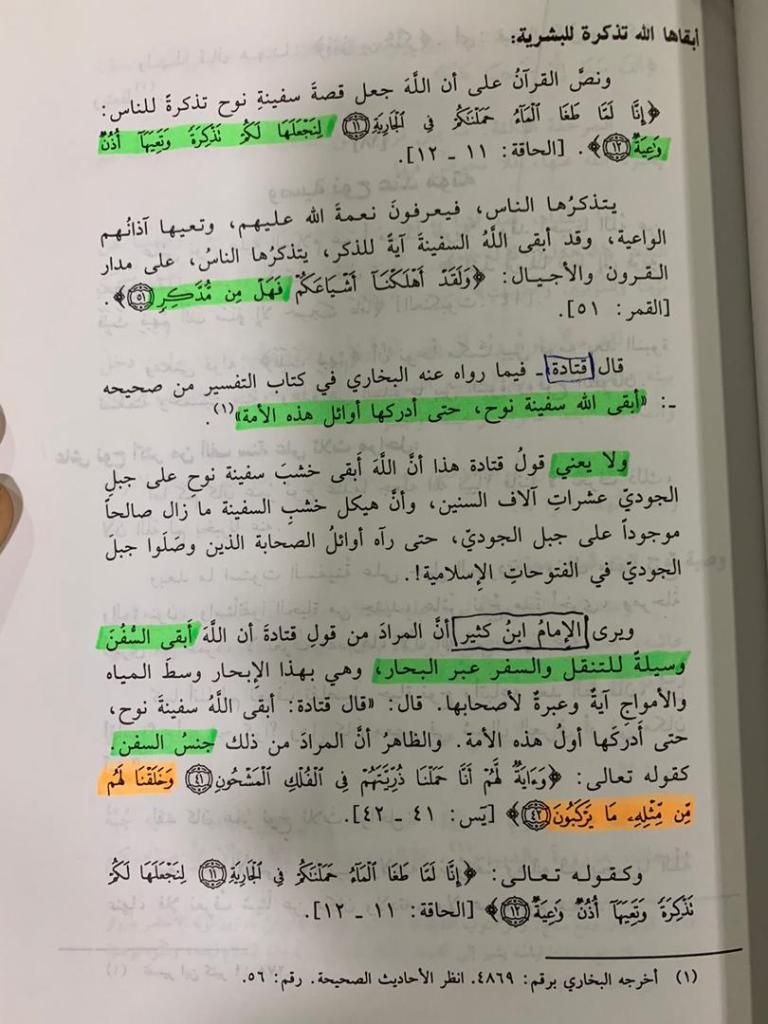 أبقاها الله تذكرة للبشرية:
ونصَّ القرآنُ على أن اللَّهَ جعل قصةَ سفينةِ نوح تذكرةً للناس:
﴿إِنَّا لَمَّا طَغَا ٱلْمَآءُ حَمَلْنَٰكُمْ فِى ٱلْجَارِيَةِ ۝١١ لِنَجْعَلَهَا لَكُمْ تَذْكِرَةً وَتَعِيَهَآ أُذُنٌ
وَٰعِيَةٌ ۝١٢﴾. [الحاقة: ١١ - ١٢].
يتذكرُها الناس، فيعرفونَ نعمةَ الله عليهم، وتعيها آذانُهم
الواعية، وقد أبقى اللَّهُ السفينةَ آيةً للذكر، يتذكرُها الناسُ، على مدار
القرون والأجيال: ﴿وَلَقَدْ أَهْلَكْنَآ أَشْيَاعَكُمْ فَهَلْ مِن مُّدَّكِرٍ ۝٥١﴾.
[القمر: ٥١].
قال قتادة - فيما رواه عنه البخاري في كتاب التفسير من صحيحه
-: «أبقى الله سفينة نوح، حتى أدركها أوائل هذه الأمة»(١).
ولا يعني قولُ قتادة هذا أنَّ اللَّهَ أَبقى خشبَ سفينة نوحٍ على جبلِ
الجوديّ عشراتِ آلاف السنين، وأنَّ هيكل خشبِ السفينة ما زال صالحاً
موجوداً على جبل الجوديّ، حتى رآه أوائلُ الصحابة الذين وصَلَوا جبلَ
الجوديّ في الفتوحاتِ الإِسلامية!.
ويرى الإِمامُ ابنُ كثير أنَّ المرادَ من قولِ قتادةَ أن اللَّهَ أَبقى السُّفنَ
وسيلةً للتنقل والسفر عبر البحار، وهي بهذا الإِبحار وسطَ المياه
والأمواجِ آيةٌ وعبرةٌ لأصحابها. قال: «قال قتادة: أبقى اللَّهُ سفينةَ نوح،
حتى أَدركَها أولُ هذه الأمة. والظاهرُ أنَّ المرادَ من ذلك جنسُ السفن.
كقوله تعالى: ﴿وَءَايَةٌ لَّهُمْ أَنَّا حَمَلْنَا ذُرِّيَّتَهُمْ فِى ٱلْفُلْكِ ٱلْمَشْحُونِ ۝٤١ وَخَلَقْنَا لَهُم
مِّن مِّثْلِهِۦ مَا يَرْكَبُونَ ۝٤٢﴾ [يَس: ٤١ - ٤٢].
وكـقـولـه تـعـالـى: ﴿إِنَّا لَمَّا طَغَا ٱلْمَآءُ حَمَلْنَٰكُمْ فِى ٱلْجَارِيَةِ ۝١١ لِنَجْعَلَهَا لَكُمْ
تَذْكِرَةً وَتَعِيَهَآ أُذُنٌ وَٰعِيَةٌ ۝١٢﴾ [الحاقة: ١١ - ١٢].
(١) أخرجه البخاري برقم: ٤٨٦٩. انظر الأحاديث الصحيحة. رقم: ٥٦.